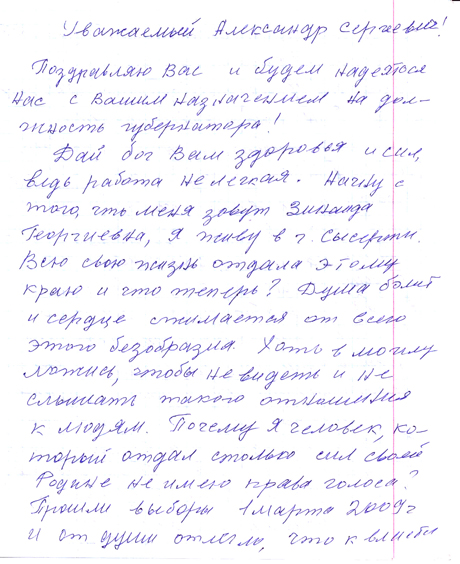 Уважаемый Александр Сергеевич!
Поздравляю Вас и будем надеятся
Нас с Вашим назначением на дол-
жность губернатора!
Дай бог Вам здоровья и сил,
ведь работа не легкая. Начну с
того, что меня зовут Зинаида
Георгиевна, я живу в г. Сысерти.
Всю свою жизнь отдала этому
краю и что теперь? Душа болит
и сердце сжимается от всего
этого безобразия. Хоть в могилу
ложись, чтобы не видеть и не
слышать такого отношения
к людям. Почему я человек, ко-
торый отдал столько сил своей
Родине не имею права голоса?
Прошли выборы 1 марта 2009г
и от души отлегло, что к власти